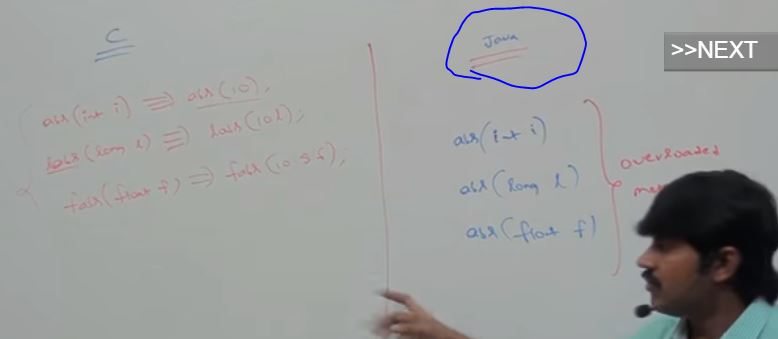 C
abs(int i) ⇒ abs(10);
labs(long l) ⇒ labs(10l);
fabs(float f) ⇒ fabs(10.5f);
Java
abs(int i)
abs(long l)
abs(float f)
overloaded
>>NEXT